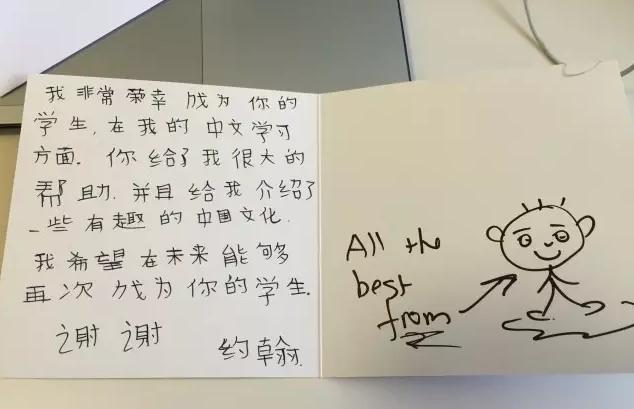 我非常荣幸成为你的
学生,在我的中文学习
方面.你给了我很大的
帮助.并且给我介绍了
一些有趣的中国文化.
我希望在未来能够
再次成为你的学生.
谢谢
约翰.
All the
best
from